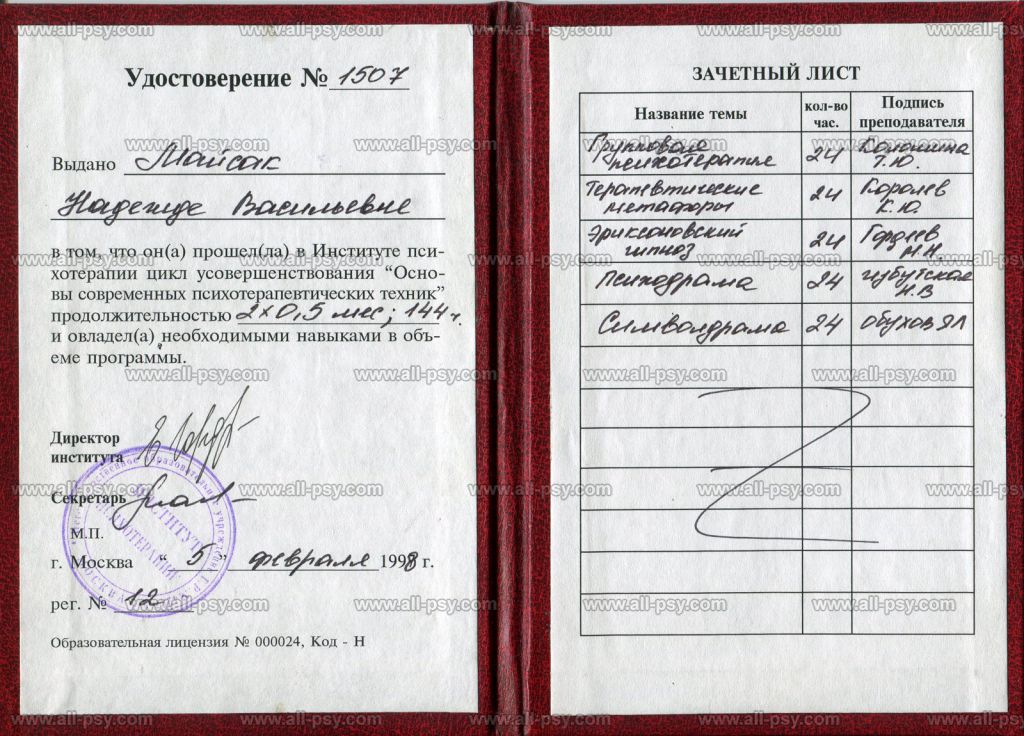 Удостоверение № 1507
Выдано Майсак
Надежде Васильевне
в том, что он(а) прошел(ла) в Институте пси-
хотерапии цикл усовершенствования “Осно-
вы современных психотерапевтических техник”
продолжительностью 2×0,5 мес; 144 г.
и овладел(а) необходимыми навыками в объ-
еме программы.
Директор
института
Секретарь
М.П.
г. Москва “ 5 ” февраля 1998 г.
рег. № 12
Образовательная лицензия № 000024, Код - Н
ИНСТИТУТ
ПСИХОТЕРАПИИ
МОСКВА
ЗАЧЕТНЫЙ ЛИСТ
Название темы кол-во час. Подпись преподавателя
Групповая психотерапия 24 Колошина Т.Ю.
Терапевтические метафоры 24 Королев К.Ю.
Эриксоновский гипноз 24 Гордеев М.Н.
Психодрама 24 Избутская Н.В
Символдрама 24 Обухов ЯЛ
www.all-psy.com